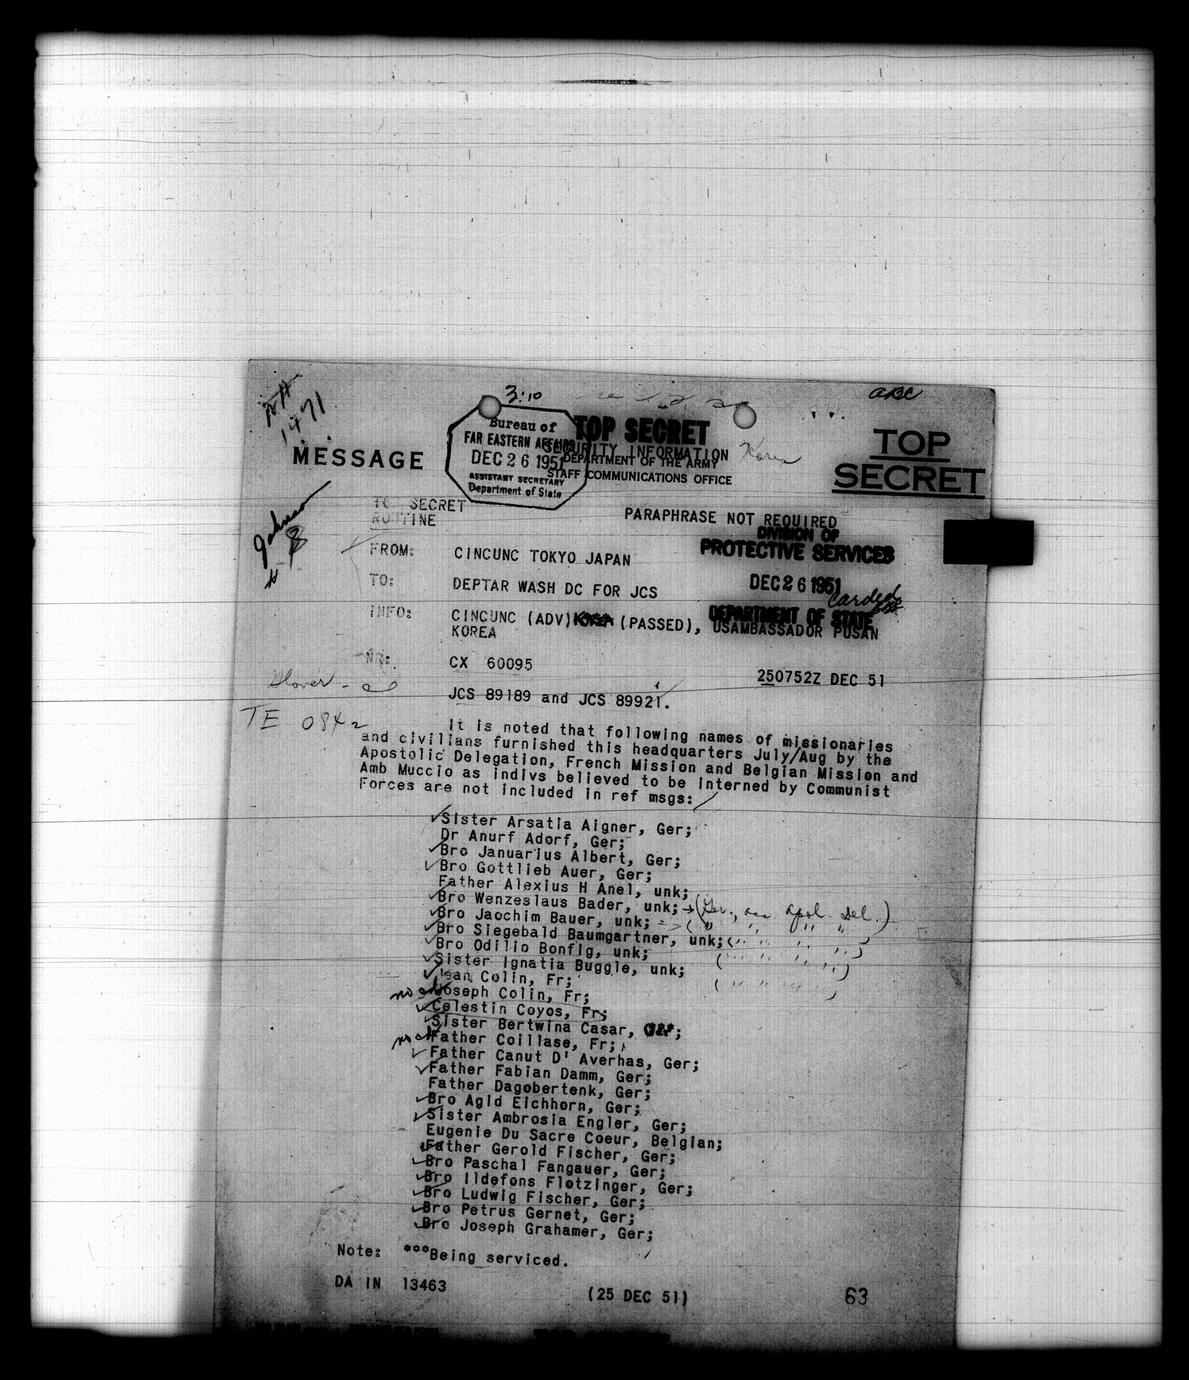 3:10
ABC
1471
Bureau of
FAR EASTERN AFFAIRS
DEC 26 1951
ASSISTANT SECRETARY
Department of State
TOP SECRET
SECURITY INFORMATION
DEPARTMENT OF THE ARMY
STAFF COMMUNICATIONS OFFICE
Korea
MESSAGE
TOP
SECRET
Johnson
SECRET
ROUTINE
PARAPHRASE NOT REQUIRED
DIVISION OF
PROTECTIVE SERVICES
DEC 26 1951
Carded
DEPARTMENT OF STATE
FROM: CINCUNC TOKYO JAPAN
TO: DEPTAR WASH DC FOR JCS
INFO: CINCUNC (ADV) KOREA (PASSED), USAMBASSADOR PUSAN
KOREA
NR: CX 60095
250752Z DEC 51
JCS 89189 and JCS 89921.
TE 0842
It is noted that following names of missionaries
and civilians furnished this headquarters July/Aug by the
Apostolic Delegation, French Mission and Belgian Mission and
Amb Muccio as indivs believed to be interned by Communist
Forces are not included in ref msgs:
Sister Arsatia Aigner, Ger;
Dr Anurf Adorf, Ger;
Bro Januarius Albert, Ger;
Bro Gottlieb Auer, Ger;
Father Alexius H Anel, unk;
Bro Wenzeslaus Bader, unk; → (Ger., Apol. Del.)
Bro Jaochim Bauer, unk; (" " " ")
Bro Siegebald Baumgartner, unk; (" " " ")
Bro Odilio Bonfig, unk; (" " " ")
Sister Ignatia Buggle, unk; (" " " ")
Jean Colin, Fr;
Joseph Colin, Fr;
Celestin Coyos, Fr;
Sister Bertwina Casar, Ger;
Father Coillase, Fr;
Father Canut D' Averhas, Ger;
Father Fabian Damm, Ger;
Father Dagobertenk, Ger;
Bro Agid Eichhorn, Ger;
Sister Ambrosia Engler, Ger;
Eugenie Du Sacre Coeur, Belgian;
Father Gerold Fischer, Ger;
Bro Paschal Fangauer, Ger;
Bro Ildefons Flotzinger, Ger;
Bro Ludwig Fischer, Ger;
Bro Petrus Gernet, Ger;
Bro Joseph Grahamer, Ger;
Note: ***Being serviced.
DA IN 13463
(25 DEC 51)
63